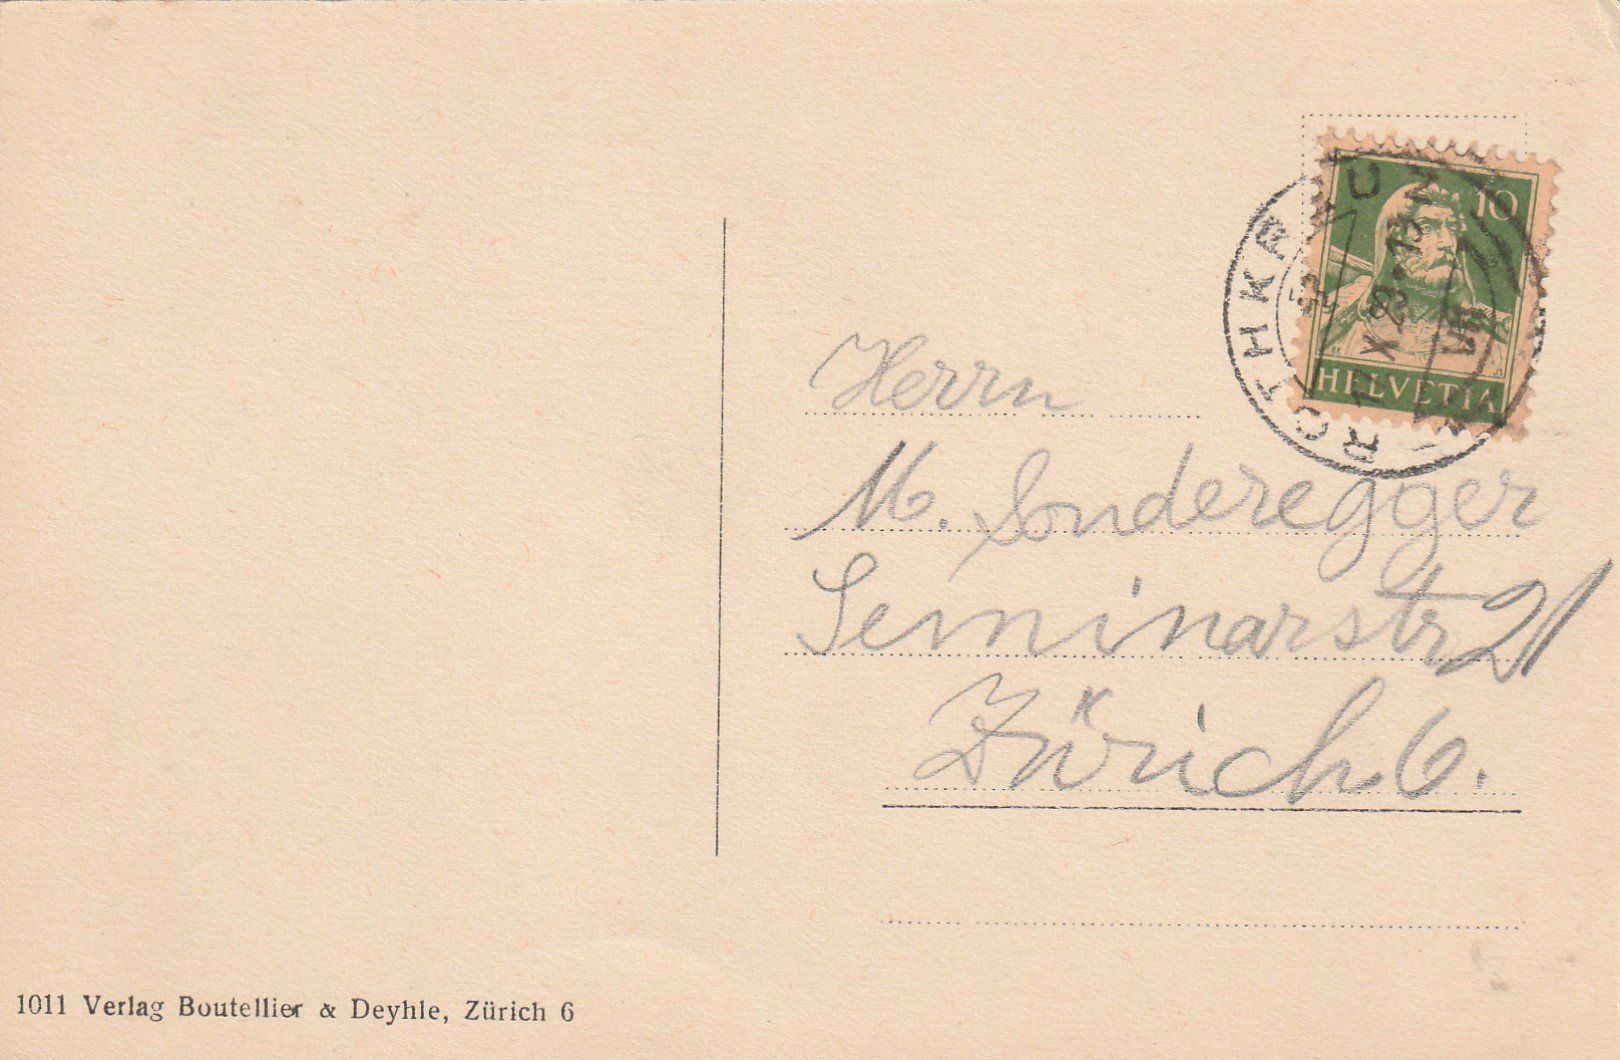 10
HELVETIA
ROTHKREUZ
X 29-13
Herrn
M. Sonderegger
Seminarstr 21
Zürich. 6.
1011 Verlag Boutellier & Deyhle, Zürich 6